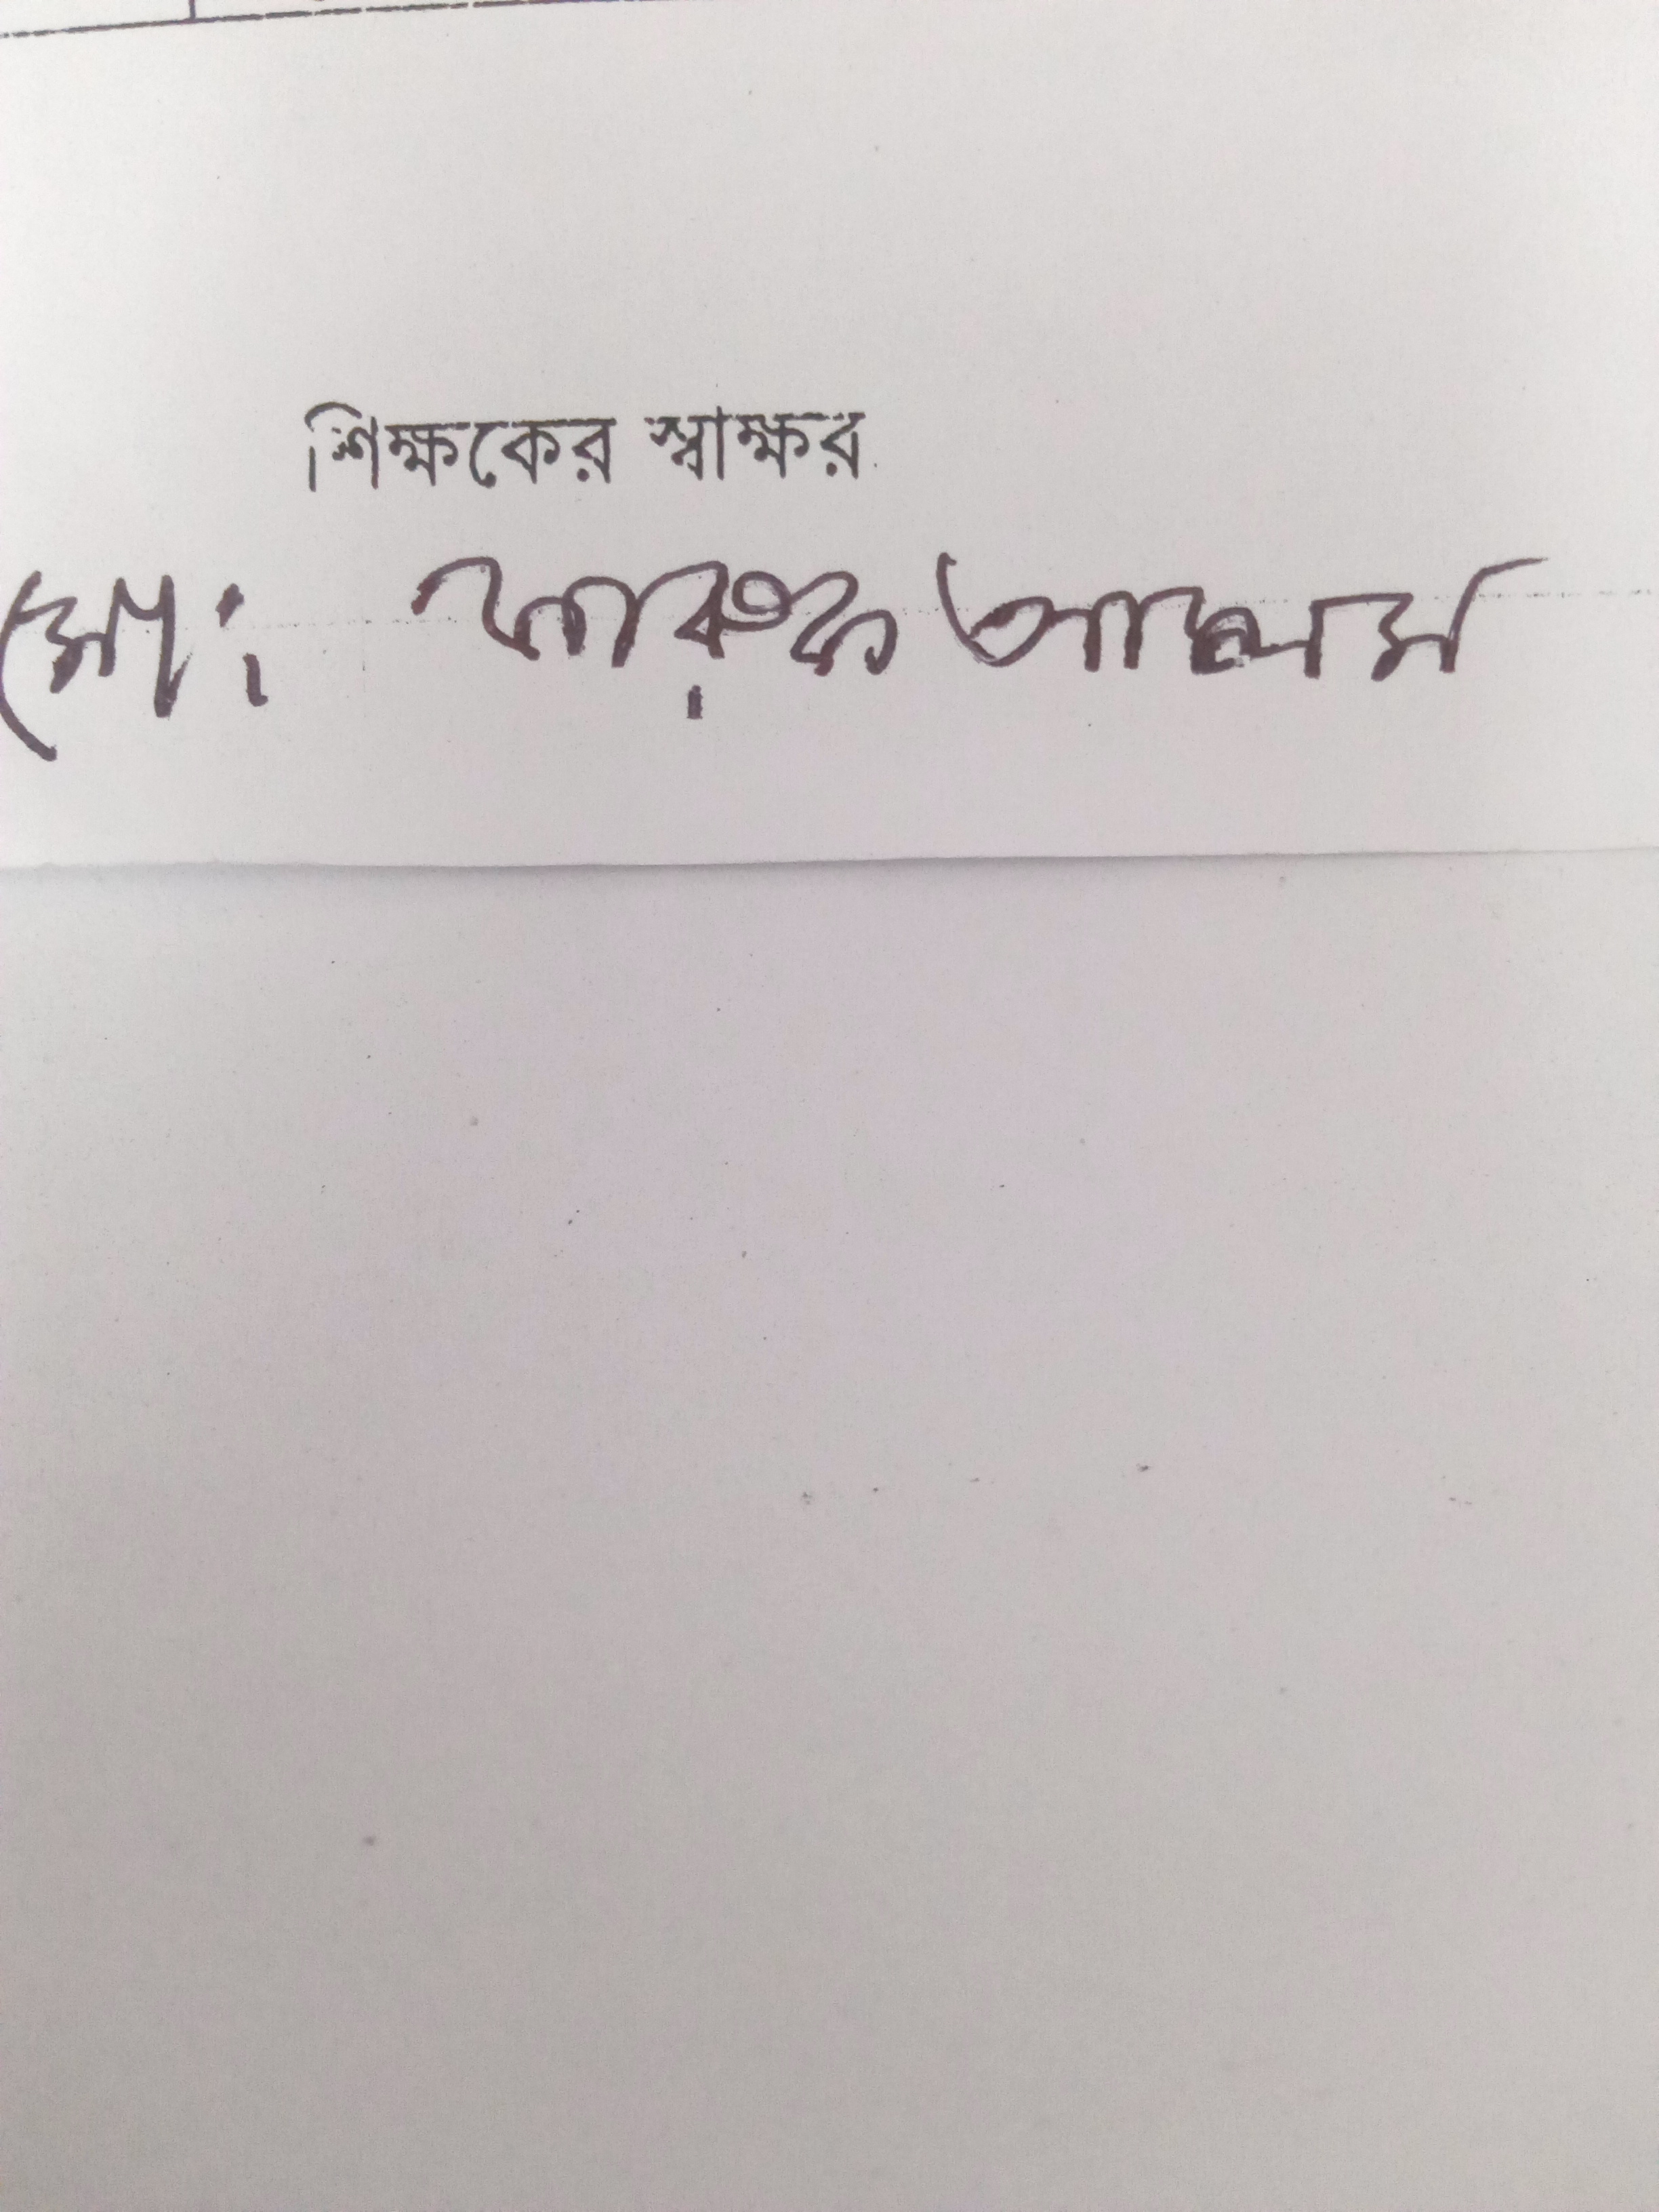 শিক্ষকের স্বাক্ষর
মোঃ ফারুক আলম